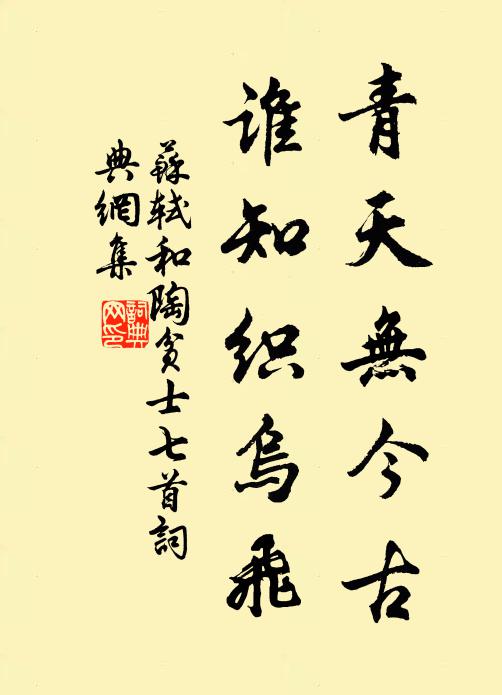 青天無今古
谁知织烏飛
蘇轼和陶贫士七首詞
典網集
詞典
网印